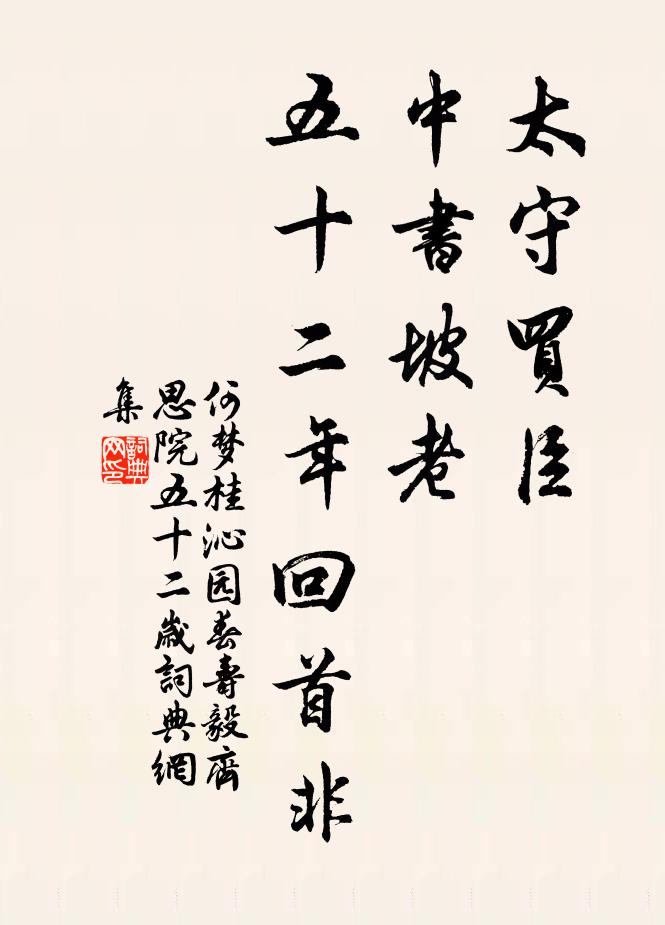 太守買臣
中書坡老
五十二年回首非
何梦桂沁园春壽毅齋
思院五十二歲詞典網
集
詞典
网印